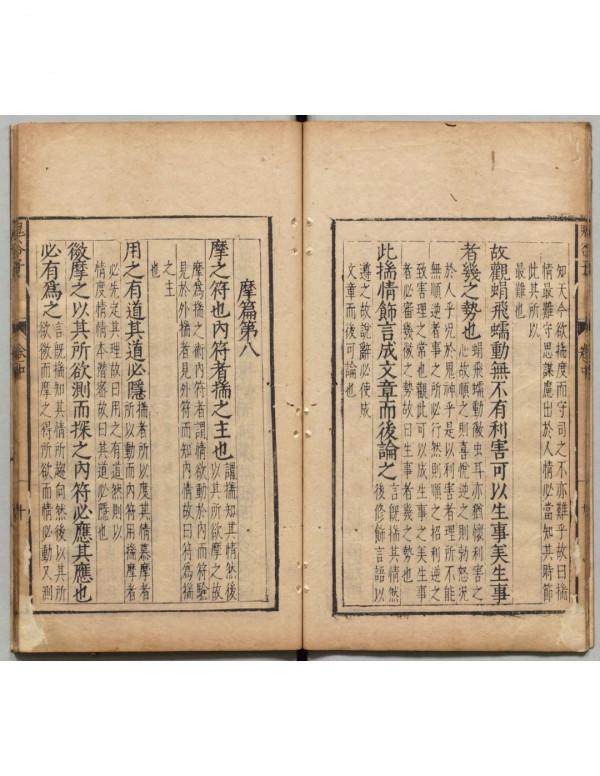 鬼谷子
卷中
知天今欲揣度而守司之不亦難乎故曰揣
情最難守思謀慮出於人情必當知其時節
此其所以
最難也
故觀蜎飛蠕動無不有利害可以生事美生事
者幾之勢也
蜎飛蠕動微虫耳亦猶懷利害之
心故順之則喜悅逆之則勃怒況
於人乎況於鬼神乎是以利害者理所不能
無順逆者事之所必行然則順之招利逆之
致害理之常也觀此可以成生事之美生事
者必審幾微之勢故曰生事者幾之勢也
此揣情飾言成文章而後論之
言既揣其情然
後修飾言語以
導之故說辭必使成
文章而後論也
摩篇第八
摩之符也內符者揣之主也
謂揣知其情然後
以其所欲摩之故
摩為揣之術內符者謂情欲動於內而符驗
見於外揣者見外符而知內情故曰符為揣
之主
也
用之有道其道必隱
揣者所以度其情慕摩者
所以動而內符用揣摩者
必先定其理故曰用之有道然則以
情度情情本潛密故曰其道必隱也
微摩之以其所欲測而探之內符必應其應也
必有為之
言既揣知其情所趨向然後以其所
欲微而摩之得所欲而情必動又測
鬼谷子
卷中
十